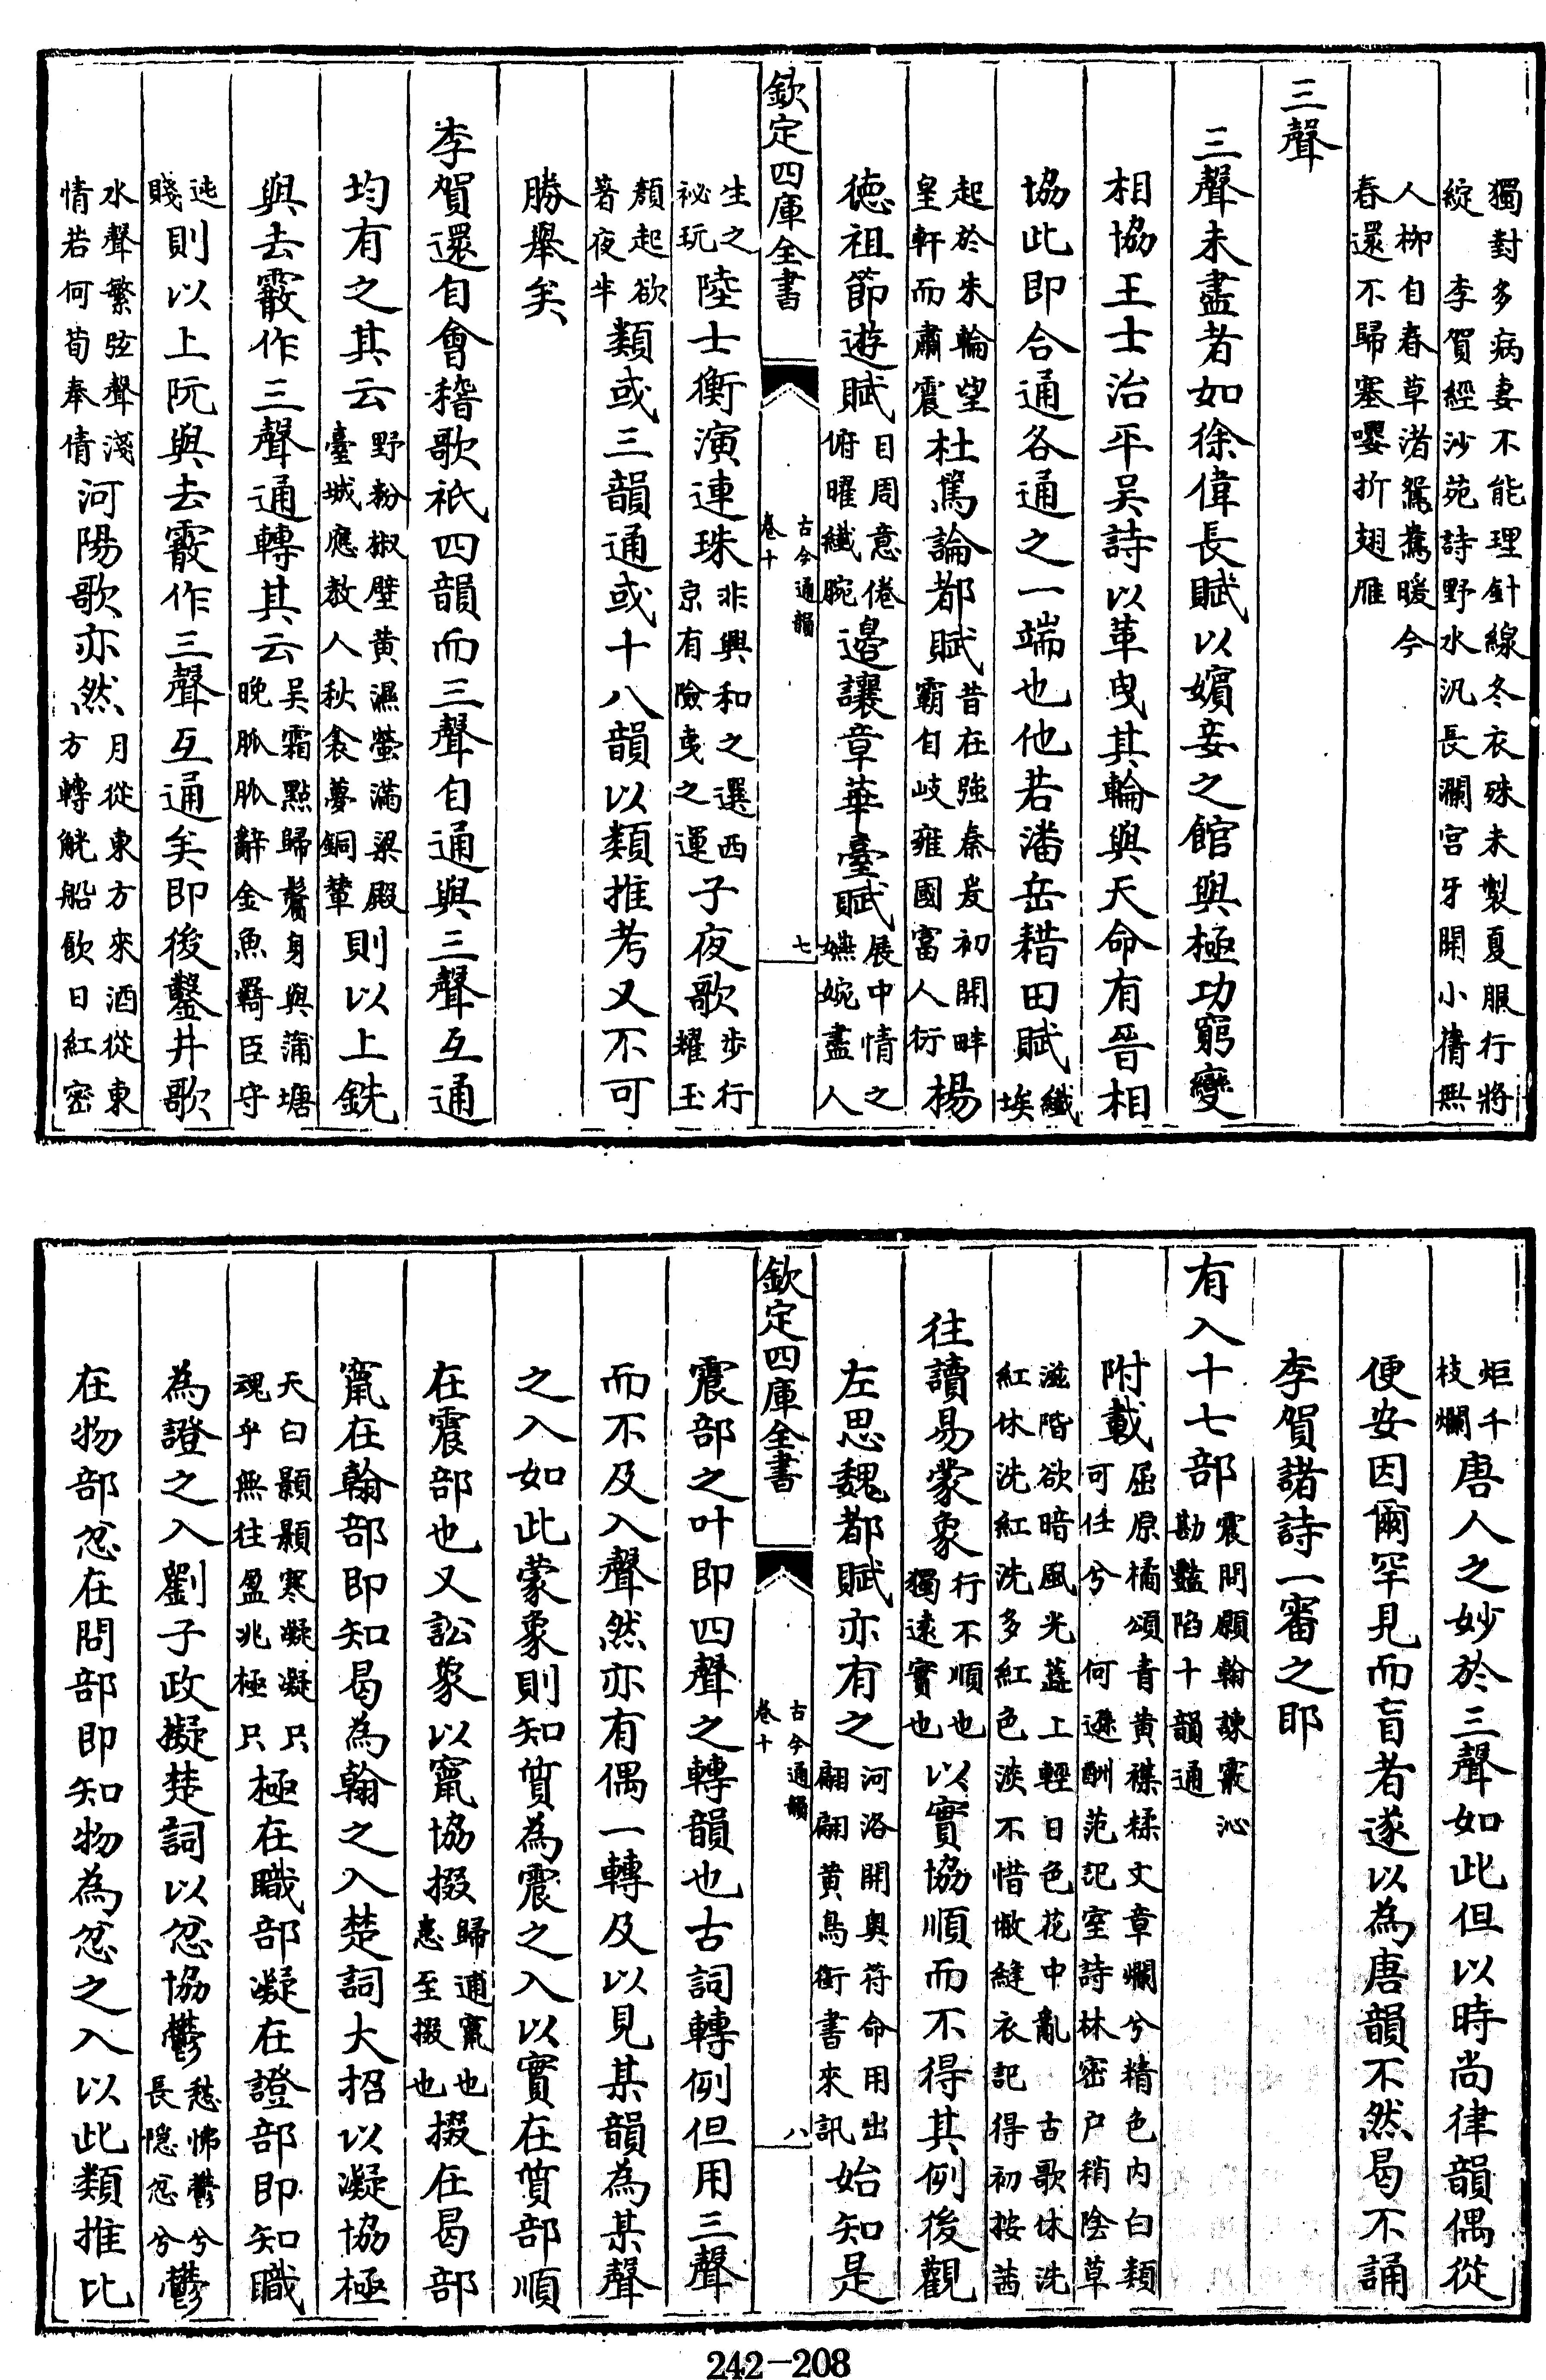 獨對多病妻不能理針線冬衣殊未製夏服行將
綻　李賀經沙苑詩野水汎長瀾宫牙開小蒨無
人柳自春草渚鴛鴦暖今
春還不歸塞嚶折翅雁
三聲
三聲未盡者如徐偉長賦以嬪妾之館與極功窮變
相協王士治平吳詩以革曳其輪與天命有晉相
協此即合通各通之一端也他若潘岳耤田賦纖
埃
起於朱輪望
皇軒而肅震杜篤論都賦昔在強秦爰初開畔
霸自岐雍國富人衍楊
德祖節遊賦目周意倦
俯曜纖腕邉讓章華臺賦展中情之
嬿婉盡人
欽定四庫全書　古今通韻
卷十　七
生之
祕玩陸士衡演連珠非興和之選西
京有險夷之運子夜歌步行
耀玉
顏起欲
著夜半類或三韻通或十八韻以類推考又不可
勝舉矣
李賀還自會稽歌祇四韻而三聲自通與三聲互通
均有之其云野粉椒壁黄濕螢滿梁殿
臺城應教人秋衾夢銅輦則以上銑
與去霰作三聲通轉其云吴霜點歸鬢身與蒲塘
晚脈脈辭金魚羇臣守
迍
賤則以上阮與去霰作三聲互通矣即後鑿井歌
水聲繁弦聲淺
情若何荀奉倩河陽歌亦然月從東方來酒從東
方轉觥船飲日紅密
炬千
枝爛唐人之妙於三聲如此但以時尚律韻偶從
便安因爾罕見而盲者遂以為唐韻不然曷不誦
李賀諸詩一審之耶
有入十七部震問願翰諫霰沁
勘豔陷十韻通
附載屈原橘頌青黄襍糅文章爛兮精色内白類
可任兮　何遜酬范記室詩林密户稍陰草
滋階欲暗風光蕋上輕日色花中亂　古歌休洗
紅休洗紅洗多紅色淡不惜㙜縫衣記得初按茜
往讀易蒙象行不順也
獨遠實也以實協順而不得其例後觀
左思魏都賦亦有之河洛開奥符命用出
翩翩黄鳥銜書來訊始知是
欽定四庫全書　古今通韻
卷十　八
震部之叶即四聲之轉韻也古詞轉例但用三聲
而不及入聲然亦有偶一轉及以見某韻為某聲
之入如此蒙象則知質為震之入以實在質部順
在震部也又訟象以竄協掇歸逋竄也
患至掇也掇在曷部
竄在翰部即知曷為翰之入楚詞大招以凝協極
天白顥顥寒凝凝只
魂乎無往盈北極只極在職部凝在證部即知職
為證之入劉子政擬楚詞以忽協鬱愁怫鬱兮
長隠忽兮鬱
在物部忽在問部即知物為忽之入以此類推比
242-208